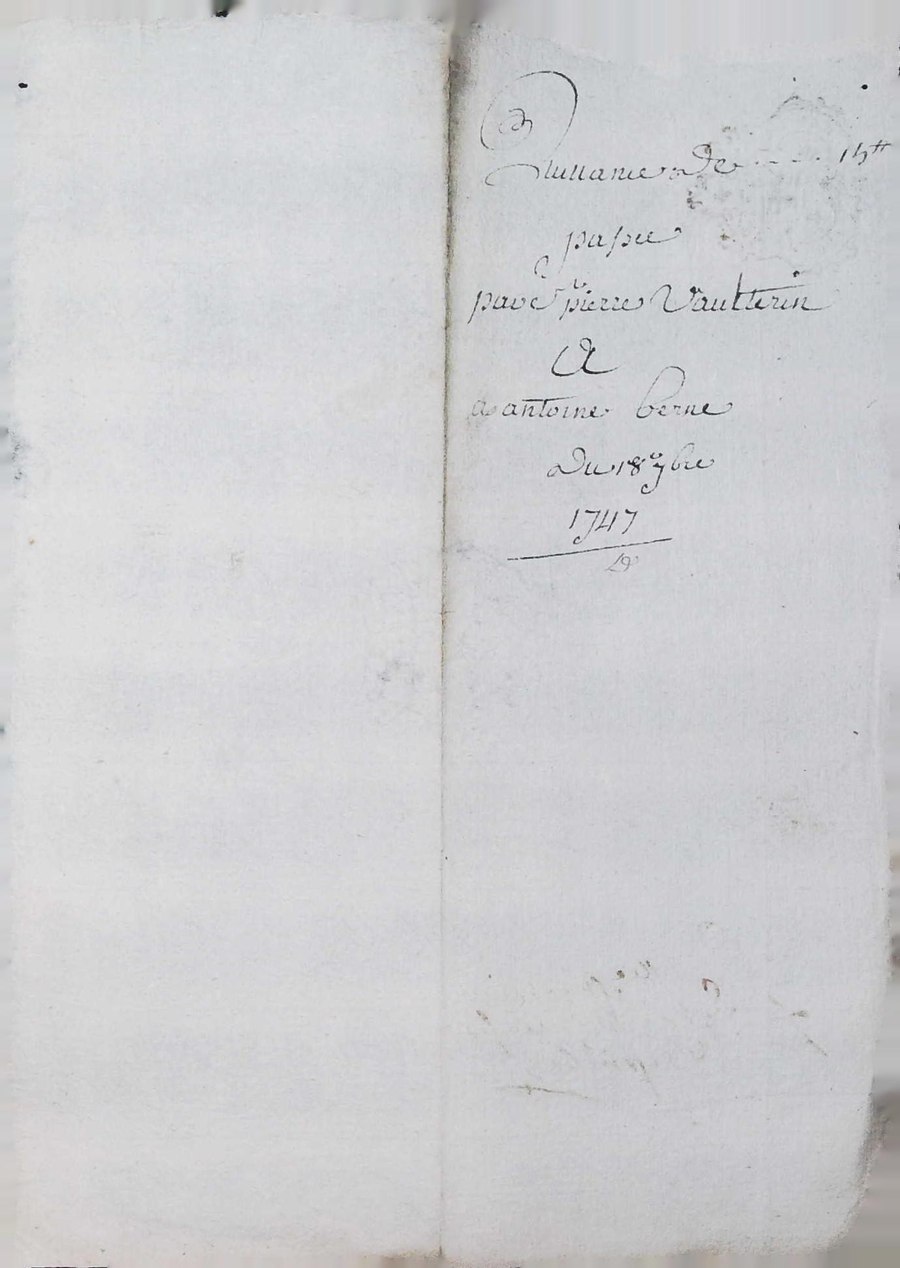 Quittance de .... 15ᵗᵗ
passée
par sʳ pierre Vaulterin
A
a antoine berne
du 18ᵉ 9bre
1747